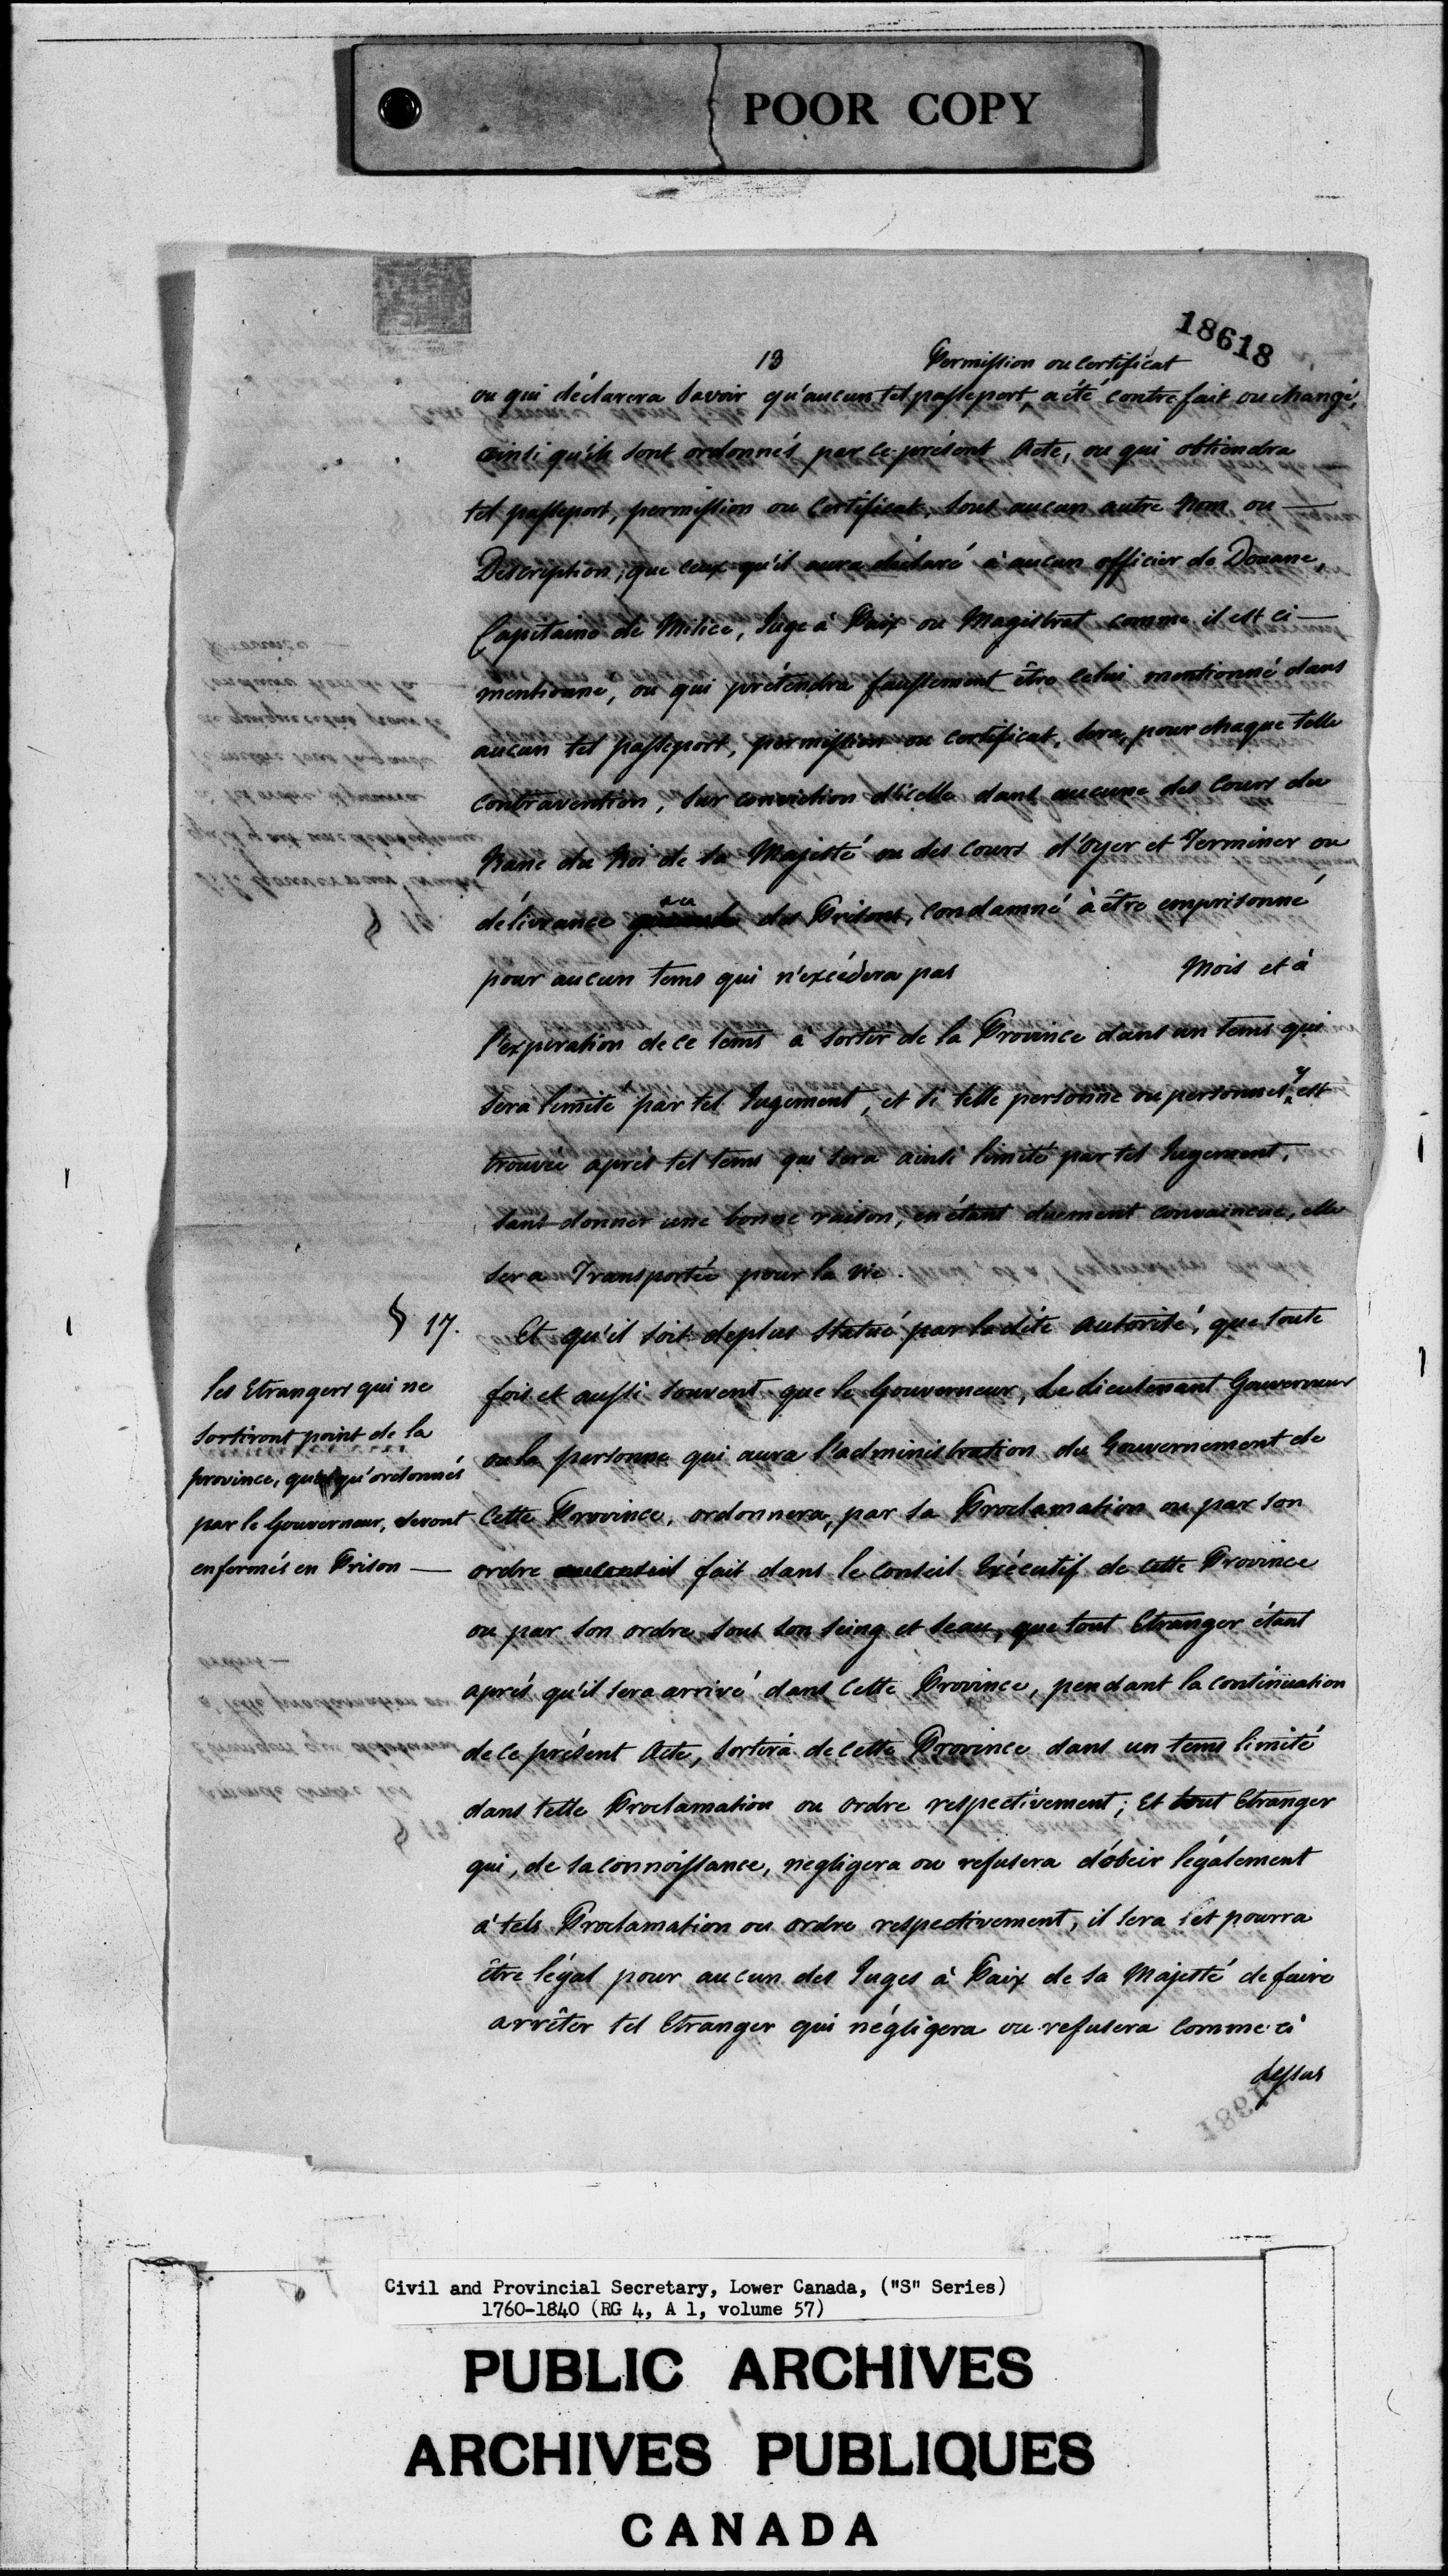 POOR COPY
18618
13
Permission ou certificat
ou qui déclarera savoir qu'aucun tel passeport, a été contrefait ou changé,
ainsi qu'ils sont ordonnés par ce présent Acte, ou qui obtiendra
tel passeport, permission ou Certificat, sous aucun autre Nom ou —
Description, que ceux qu'il aura déclaré à aucun officier de Douane,
Capitaine de Milice, Juge à Paix ou Magistrat comme il est ci —
mentionne, ou qui prétendra faussement être celui mentionné dans
aucun tel passeport, permission ou certificat, sera, pour chaque telle
contravention, sur conviction d'icelle dans aucune des Cours du
Banc du Roi de sa Majesté ou des Cours d'Oyer et Terminer ou
délivrance des Prisons, condamné à être emprisonné
pour aucun tems qui n'excédera pas Mois et à
l'expiration de ce tems à sortir de la Province dans un tems qui
sera limité par tel Jugement, et si telle personne ou personnes y est
trouvée après tel tems qui sera ainsi limité par tel Jugement,
sans donner une bonne raison, en étant duement convaincue, elle
sera Transportée pour la vie.
§ 17. Et qu'il soit deplus Statué par ladite Autorité, que toute
fois et aussi souvent que le Gouverneur, Le Lieutenant Gouverneur
ou la personne qui aura l'administration du Gouvernement de
Cette Province, ordonnera, par sa Proclamation ou par son
ordre au conseil fait dans le Conseil Exécutif de cette Province
ou par son ordre sous son seing et seau, que tout Etranger étant
après qu'il sera arrivé dans Cette Province, pendant la continuation
de ce présent Acte, sortira de cette Province dans un tems limité
dans telle Proclamation ou ordre respectivement; Et tout Etranger
qui, de sa connoissance, negligera ou refusera d'obeir légalement
à tels Proclamation ou ordre respectivement, il sera et pourra
être légal pour aucun des Juges à Paix de sa Majesté de faire
arrêter tel Etranger qui négligera ou refusera comme ci
dessus
les Etrangers qui ne
sortiront point de la
province, quoiqu'ordonnés
par le Gouverneur, seront
enfermés en Prison —
Civil and Provincial Secretary, Lower Canada, ("S" Series)
1760-1840 (RG 4, A 1, volume 57)
PUBLIC ARCHIVES
ARCHIVES PUBLIQUES
CANADA